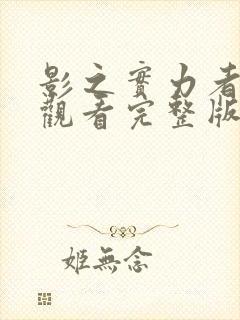 影之實力者
觀看完整版
姬無念